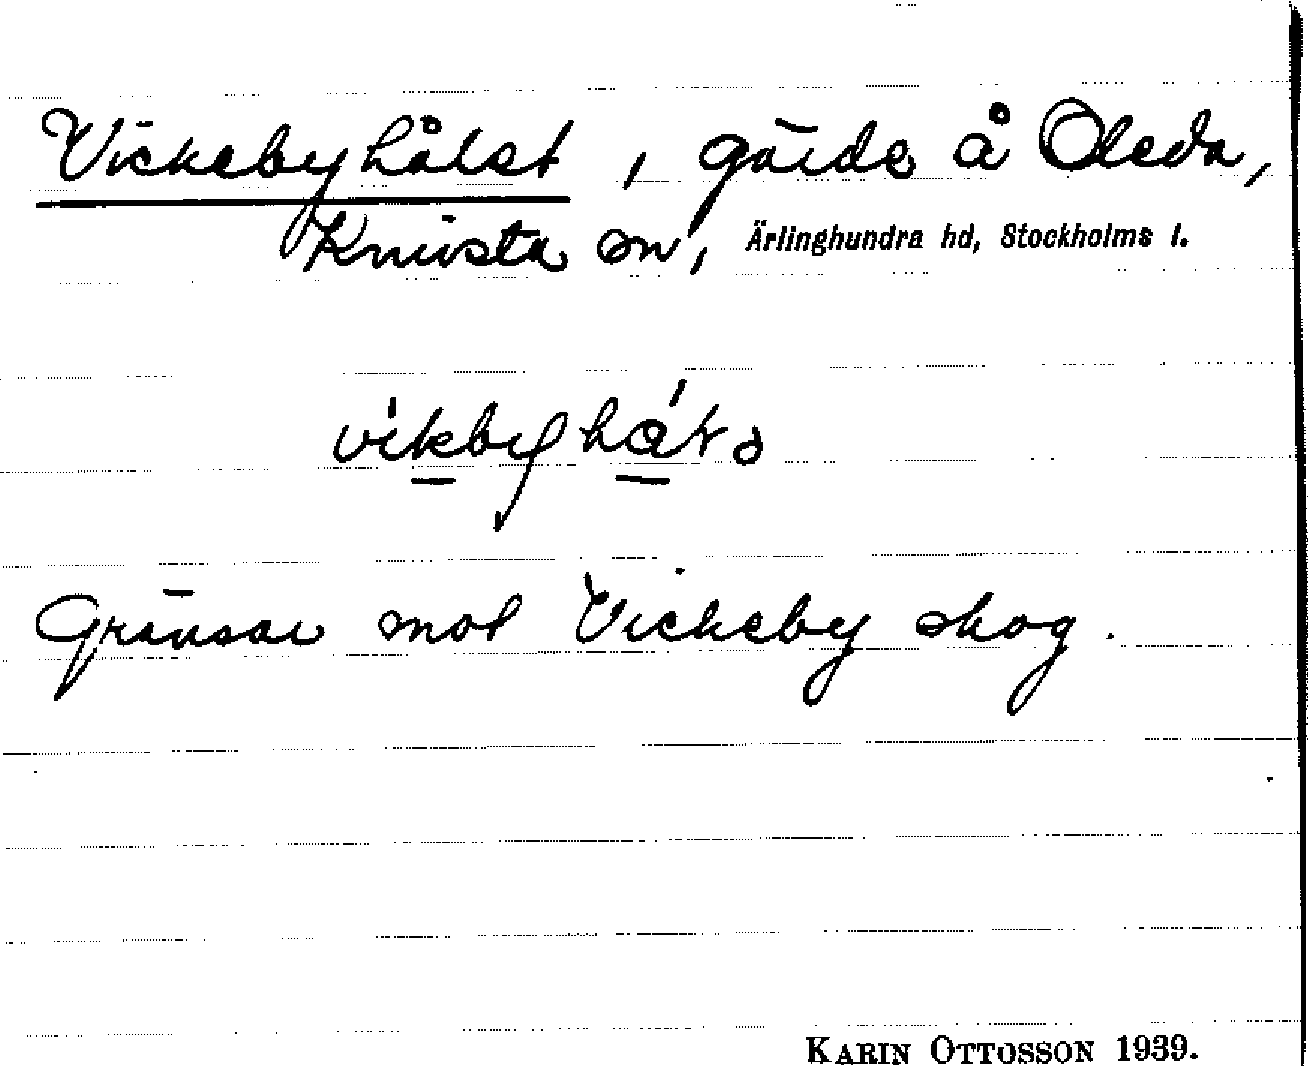 Vickebyhålet, gärde å Oleda,
Knivsta sn, Ärlinghundra hd, Stockholms l.
Gränsar mot Vickeby skog.
KARIN OTTOSSON 1939.